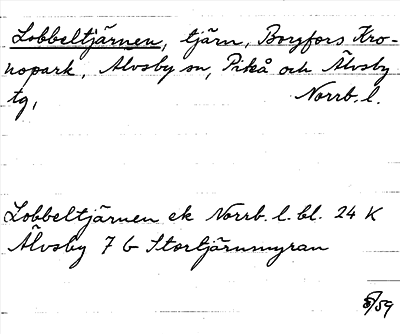 Lobbeltjärnen, tjärn, Borgfors Kro-
nopark, Älvsby sn, Piteå och Älvsby
tg, Norrb. l.
Lobbeltjärnen ek Norrb. l. bl. 24 K
Älvsby 7 b Stortjärnmyran
/59